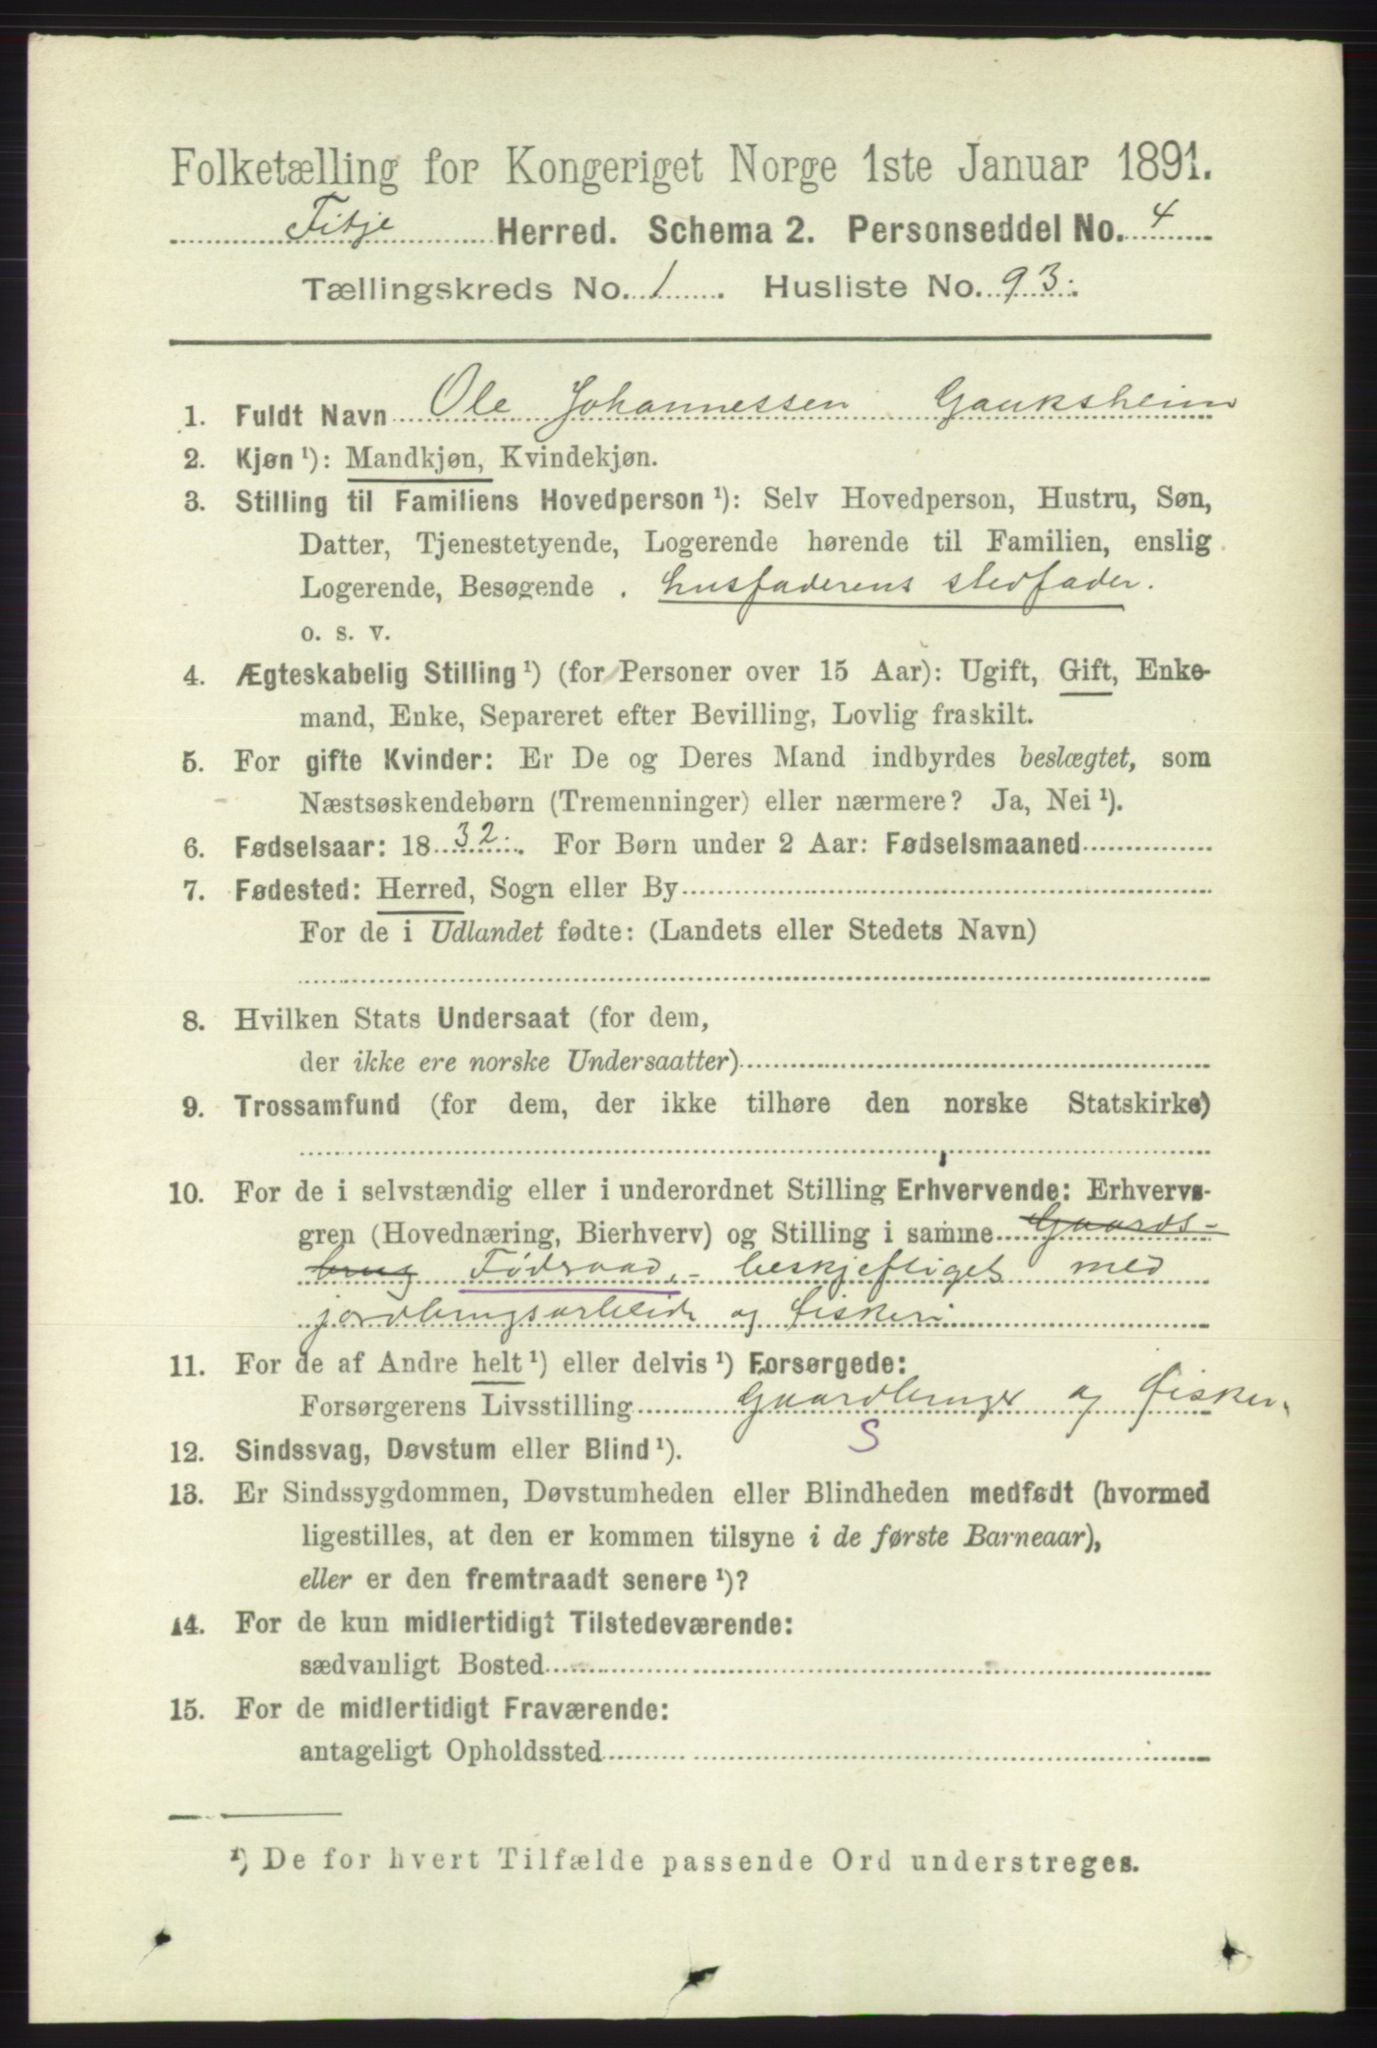 Folketælling for Kongeriget Norge 1ste Januar 1891.
Fitje Herred. Schema 2. Personseddel No. 4
Tællingskreds No. 1. Husliste No. 93.
1. Fuldt Navn Ole Johannessen Gauksheim
2. Kjøn ¹): Mandkjøn, Kvindekjøn.
3. Stilling til Familiens Hovedperson ¹): Selv Hovedperson, Hustru, Søn,
Datter, Tjenestetyende, Logerende hørende til Familien, enslig
Logerende, Besøgende . husfaderens stedfader.
o. s. v.
4. Ægteskabelig Stilling ¹) (for Personer over 15 Aar): Ugift, Gift, Enke-
mand, Enke, Separeret efter Bevilling, Lovlig fraskilt.
5. For gifte Kvinder: Er De og Deres Mand indbyrdes beslægtet, som
Næstsøskendebørn (Tremenninger) eller nærmere? Ja, Nei ¹).
6. Fødselsaar: 18 32. For Børn under 2 Aar: Fødselsmaaned
7. Fødested: Herred, Sogn eller By
For de i Udlandet fødte: (Landets eller Stedets Navn)
8. Hvilken Stats Undersaat (for dem,
der ikke ere norske Undersaatter)
9. Trossamfund (for dem, der ikke tilhøre den norske Statskirke)
10. For de i selvstændig eller i underordnet Stilling Erhvervende: Erhvervs-
gren (Hovednæring, Bierhverv) og Stilling i samme Gaards-
brug Födraad, - beskjeftiget med
jordbrugsarbeide og fiskeri
11. For de af Andre helt ¹) eller delvis ¹) Forsørgede:
Forsørgerens Livsstilling Gaardbruger og fisker.
12. Sindssvag, Døvstum eller Blind ¹). S
13. Er Sindssygdommen, Døvstumheden eller Blindheden medfødt (hvormed
ligestilles, at den er kommen tilsyne i de første Barneaar),
eller er den fremtraadt senere ¹)?
14. For de kun midlertidigt Tilstedeværende:
sædvanligt Bosted
15. For de midlertidigt Fraværende:
antageligt Opholdssted
¹) De for hvert Tilfælde passende Ord understreges.